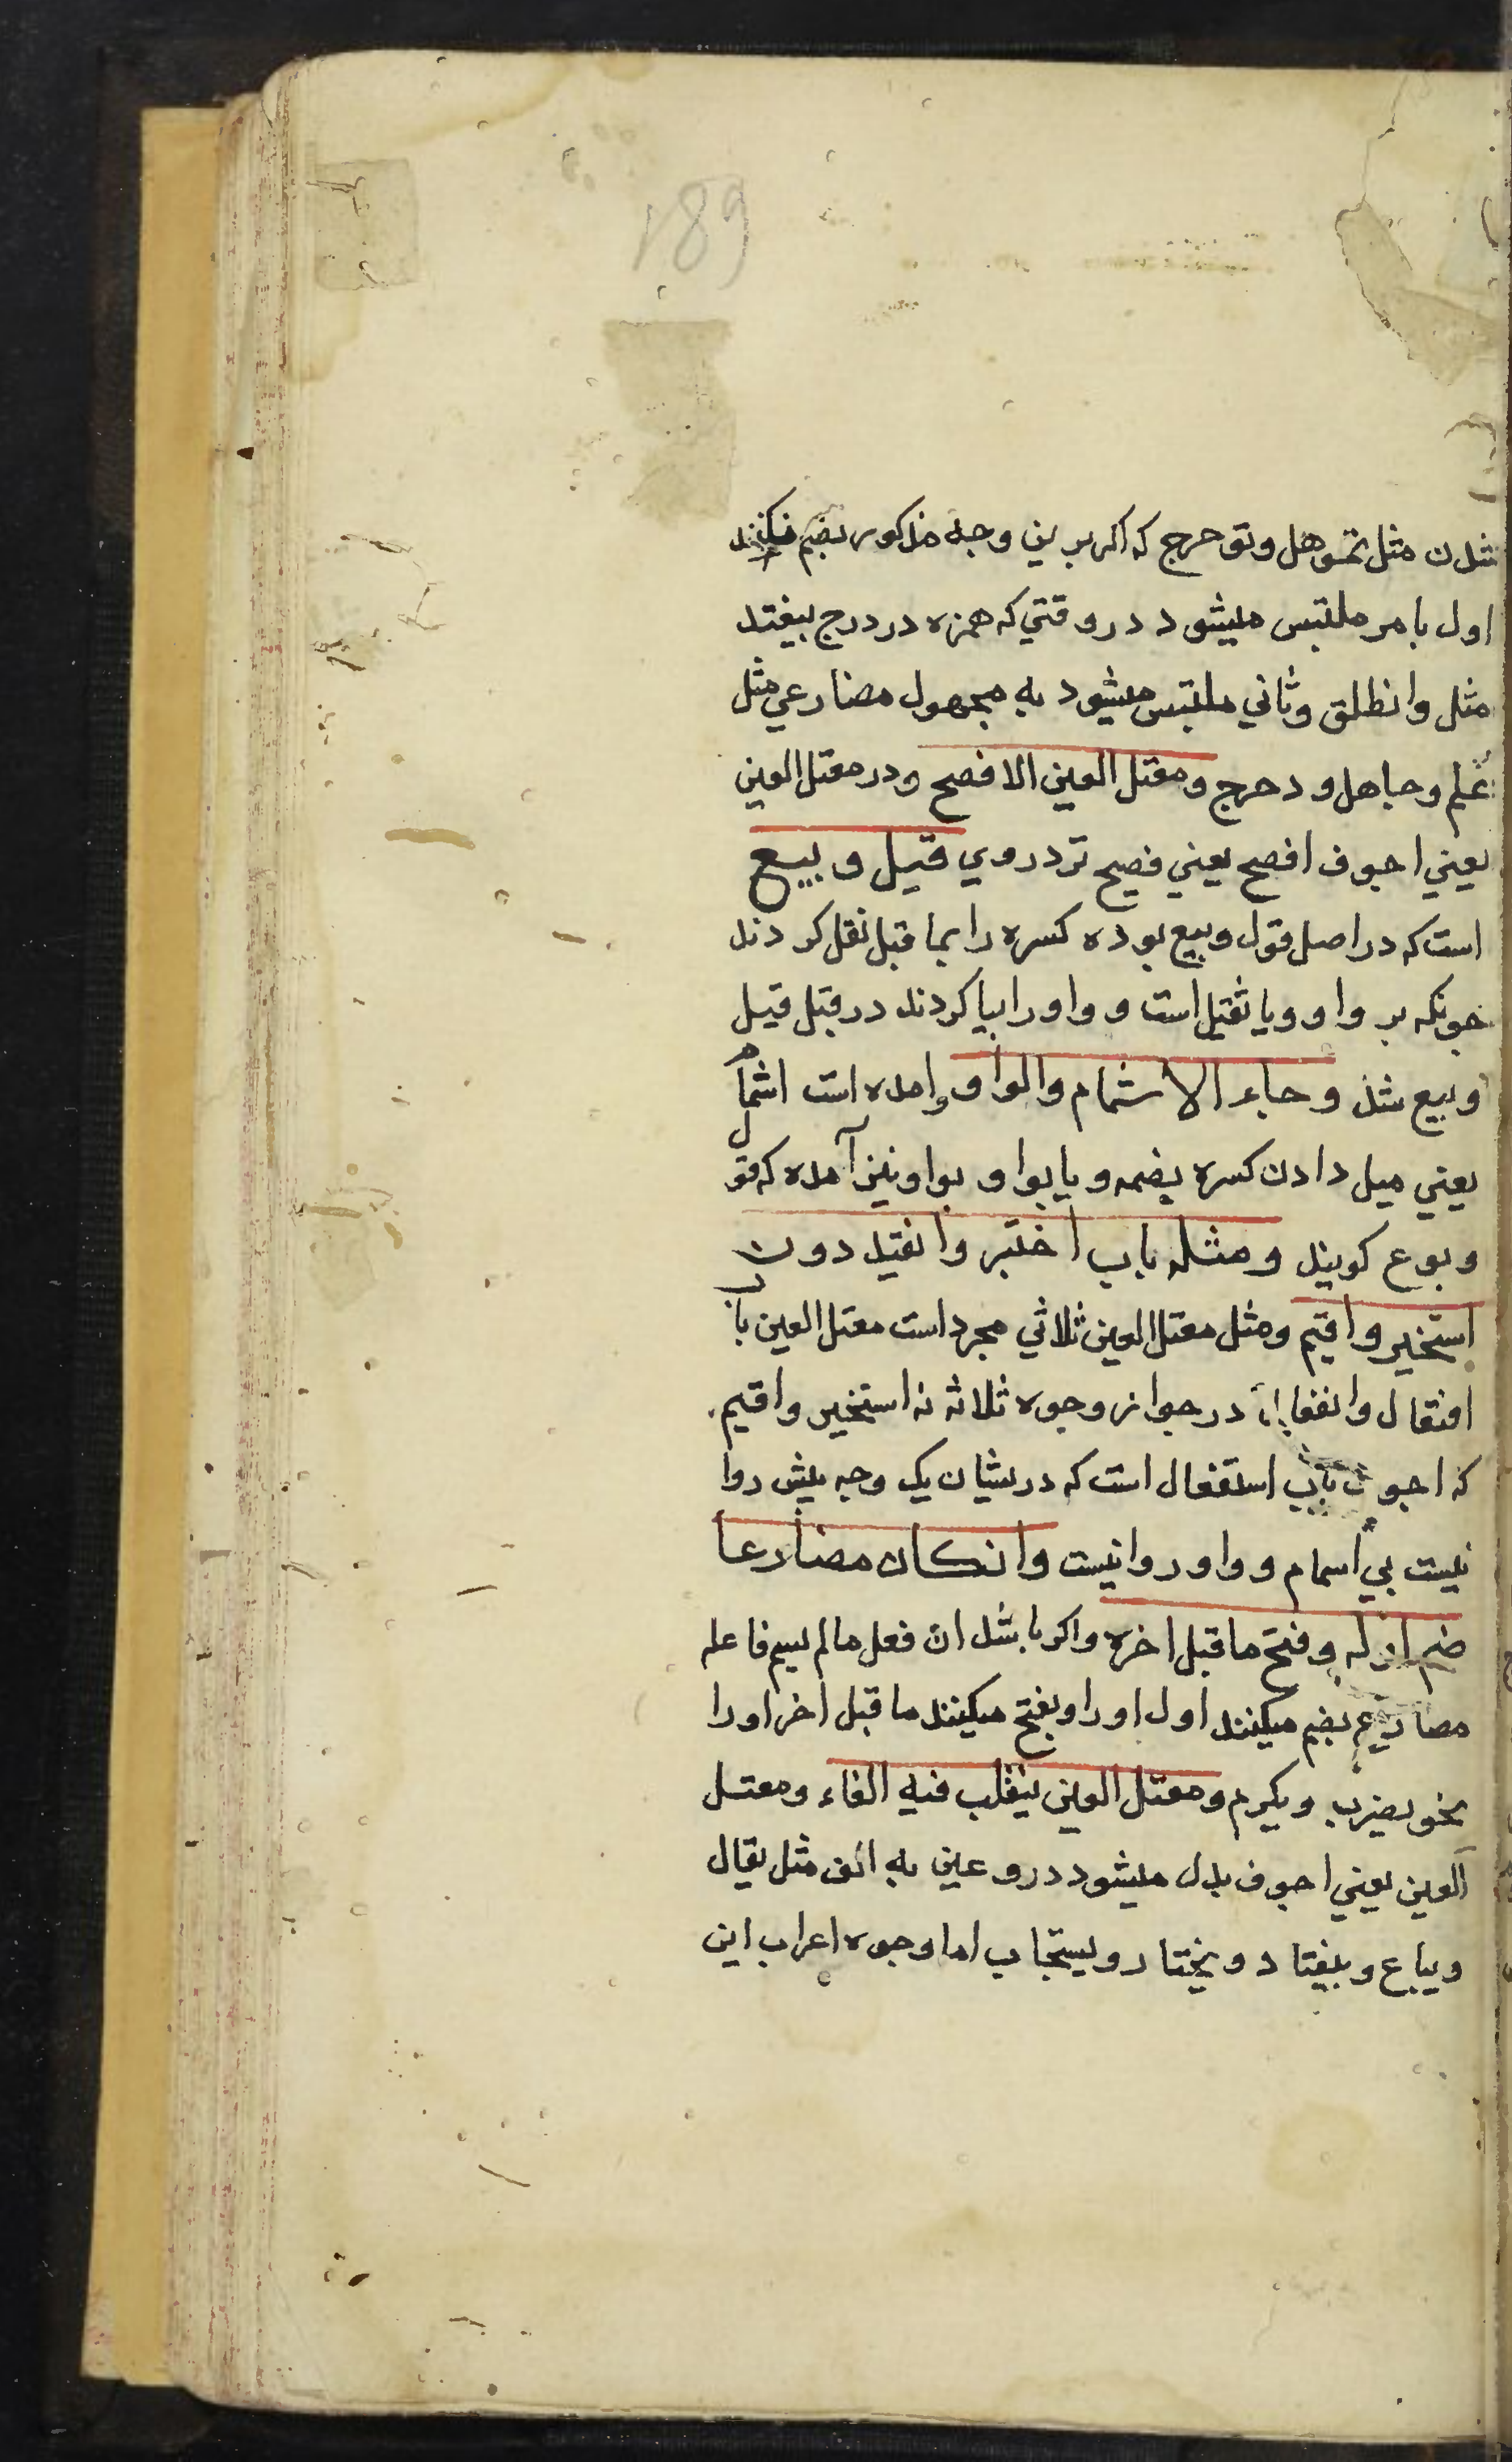 189
شدن مثل تموهل وتو حرج که اکر برین وجه مذکور بضم نکنند
اول بامر ملتبس میشود در وقتي که همزه در درج بیفتد
مثل وانطلق وثاني ملتبس میشود به مجهول مضارعي مثل
عُلم وجاهل و دحرج ومعتل العین الافصح ودر معتل العین
یعني اجوف افصح یعني فصیح تر دروي قیل و بیع
است که در اصل قول وبیع بوده کسره را بما قبل نقل کردند
جونکه بر واو ویا ثقیل است وواو را بیا کردند در قبل قیل
وبیع شد وجاء الاشمام والواو وامده است اشمام
یعني میل دادن کسره بضمه ویا بواو بواو نیز آمده که قول
وبوع کویند ومثله باب اختیر وانقید دون
استخیر واقیم ومثل معتل العین ثلاثي مجرد است معتل العین باب
افتعال وانفعال در جواز وجوه ثلاثه نه استخیر واقیم
که اجوف باب استفعال است که در یشان یک وجه بیش روا
نیست بي اسمام وواو روا نیست وانکان مضارعا
ضم اوله وفتح ما قبل اخره واکر باشد ان فعل مالم یسم فاعله
مضارع بضم میکنند اول اورا وبفتح میکنند ما قبل اخر اورا
نحو یضرب ویکرم ومعتل العین ینقلب فیه الفاء ومعتل
العین یعني اجوف بدل میشود درو عین به الف مثل یقال
ویباع وینقاد ویختار ویستجاب اما وجوه اعراب این